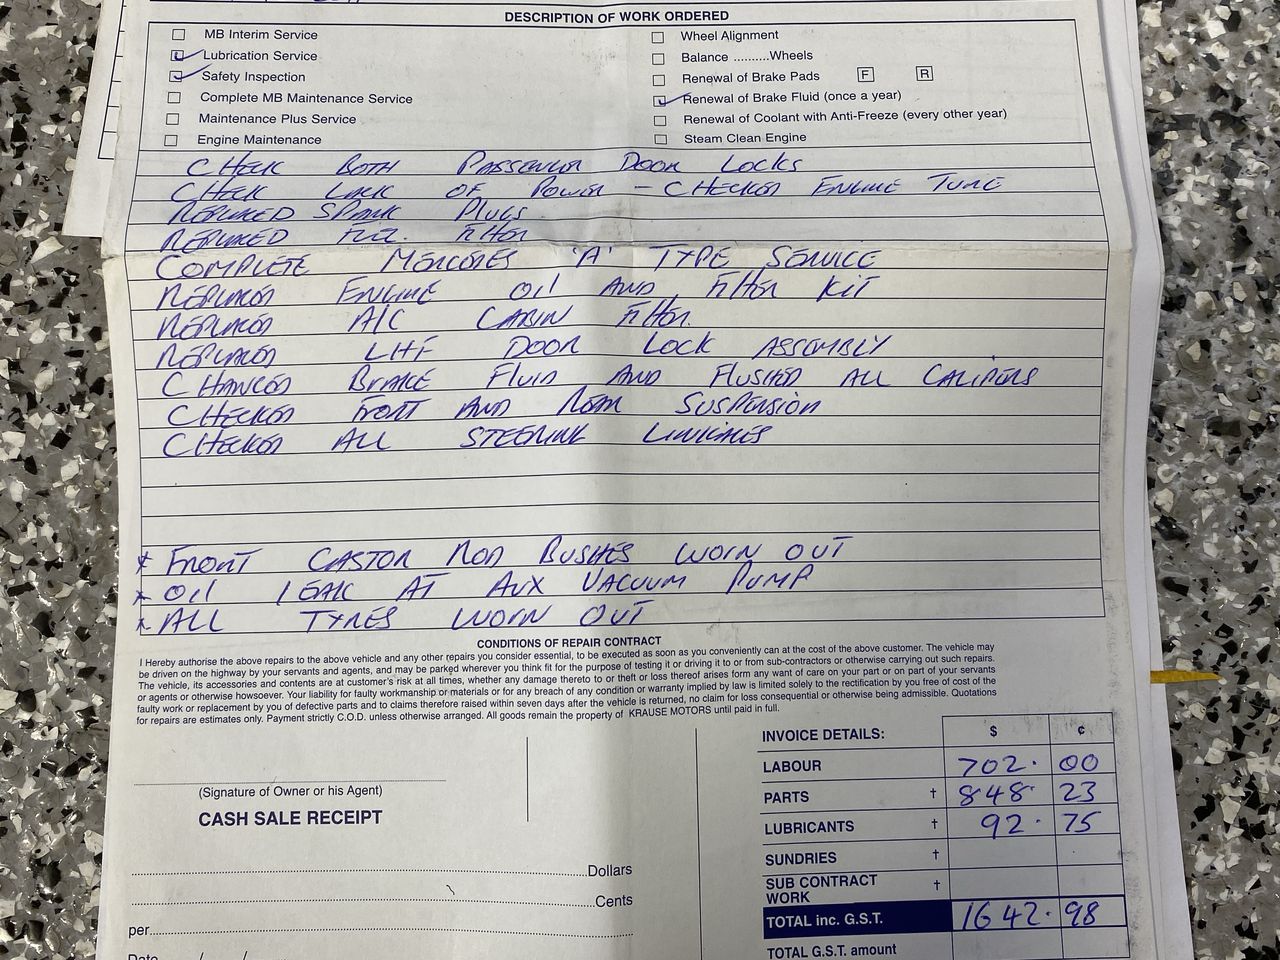 DESCRIPTION OF WORK ORDERED
MB Interim Service
Lubrication Service
Safety Inspection
Complete MB Maintenance Service
Maintenance Plus Service
Engine Maintenance
Wheel Alignment
Balance ..........Wheels
Renewal of Brake Pads F R
Renewal of Brake Fluid (once a year)
Renewal of Coolant with Anti-Freeze (every other year)
Steam Clean Engine
CHECK BOTH PASSENGER DOOR LOCKS
CHECK LACK OF POWER - CHECKED ENGINE TUNE
REPLACED SPARK PLUGS
REPLACED FUEL FILTER
COMPLETE MERCEDES 'A' TYPE SERVICE
REPLACED ENGINE OIL AND FILTER KIT
REPLACED A/C CABIN FILTER.
REPLACED LHF DOOR LOCK ASSEMBLY
CHANGED BRAKE FLUID AND FLUSHED ALL CALIPERS
CHECKED FRONT AND REAR SUSPENSION
CHECKED ALL STEERING LINKAGES
* FRONT CASTOR ROD BUSHES WORN OUT
* OIL LEAK AT AUX VACUUM PUMP
* ALL TYRES WORN OUT
CONDITIONS OF REPAIR CONTRACT
I Hereby authorise the above repairs to the above vehicle and any other repairs you consider essential, to be executed as soon as you conveniently can at the cost of the above customer. The vehicle may
be driven on the highway by your servants and agents, and may be parked wherever you think fit for the purpose of testing it or driving it to or from sub-contractors or otherwise carrying out such repairs.
The vehicle, its accessories and contents are at customer's risk at all times, whether any damage thereto or theft or loss thereof arises form any want of care on your part or on part of your servants
or agents or otherwise howsoever. Your liability for faulty workmanship or materials or for any breach of any condition or warranty implied by law is limited solely to the rectification by you free of cost of the
faulty work or replacement by you of defective parts and to claims therefore raised within seven days after the vehicle is returned, no claim for loss consequential or otherwise being admissible. Quotations
for repairs are estimates only. Payment strictly C.O.D. unless otherwise arranged. All goods remain the property of KRAUSE MOTORS until paid in full.
(Signature of Owner or his Agent)
CASH SALE RECEIPT
Dollars
Cents
per
Date / /
INVOICE DETAILS: $ ¢
LABOUR 702. 00
PARTS † 848. 23
LUBRICANTS † 92. 75
SUNDRIES †
SUB CONTRACT
WORK †
TOTAL inc. G.S.T. 1642. 98
TOTAL G.S.T. amount